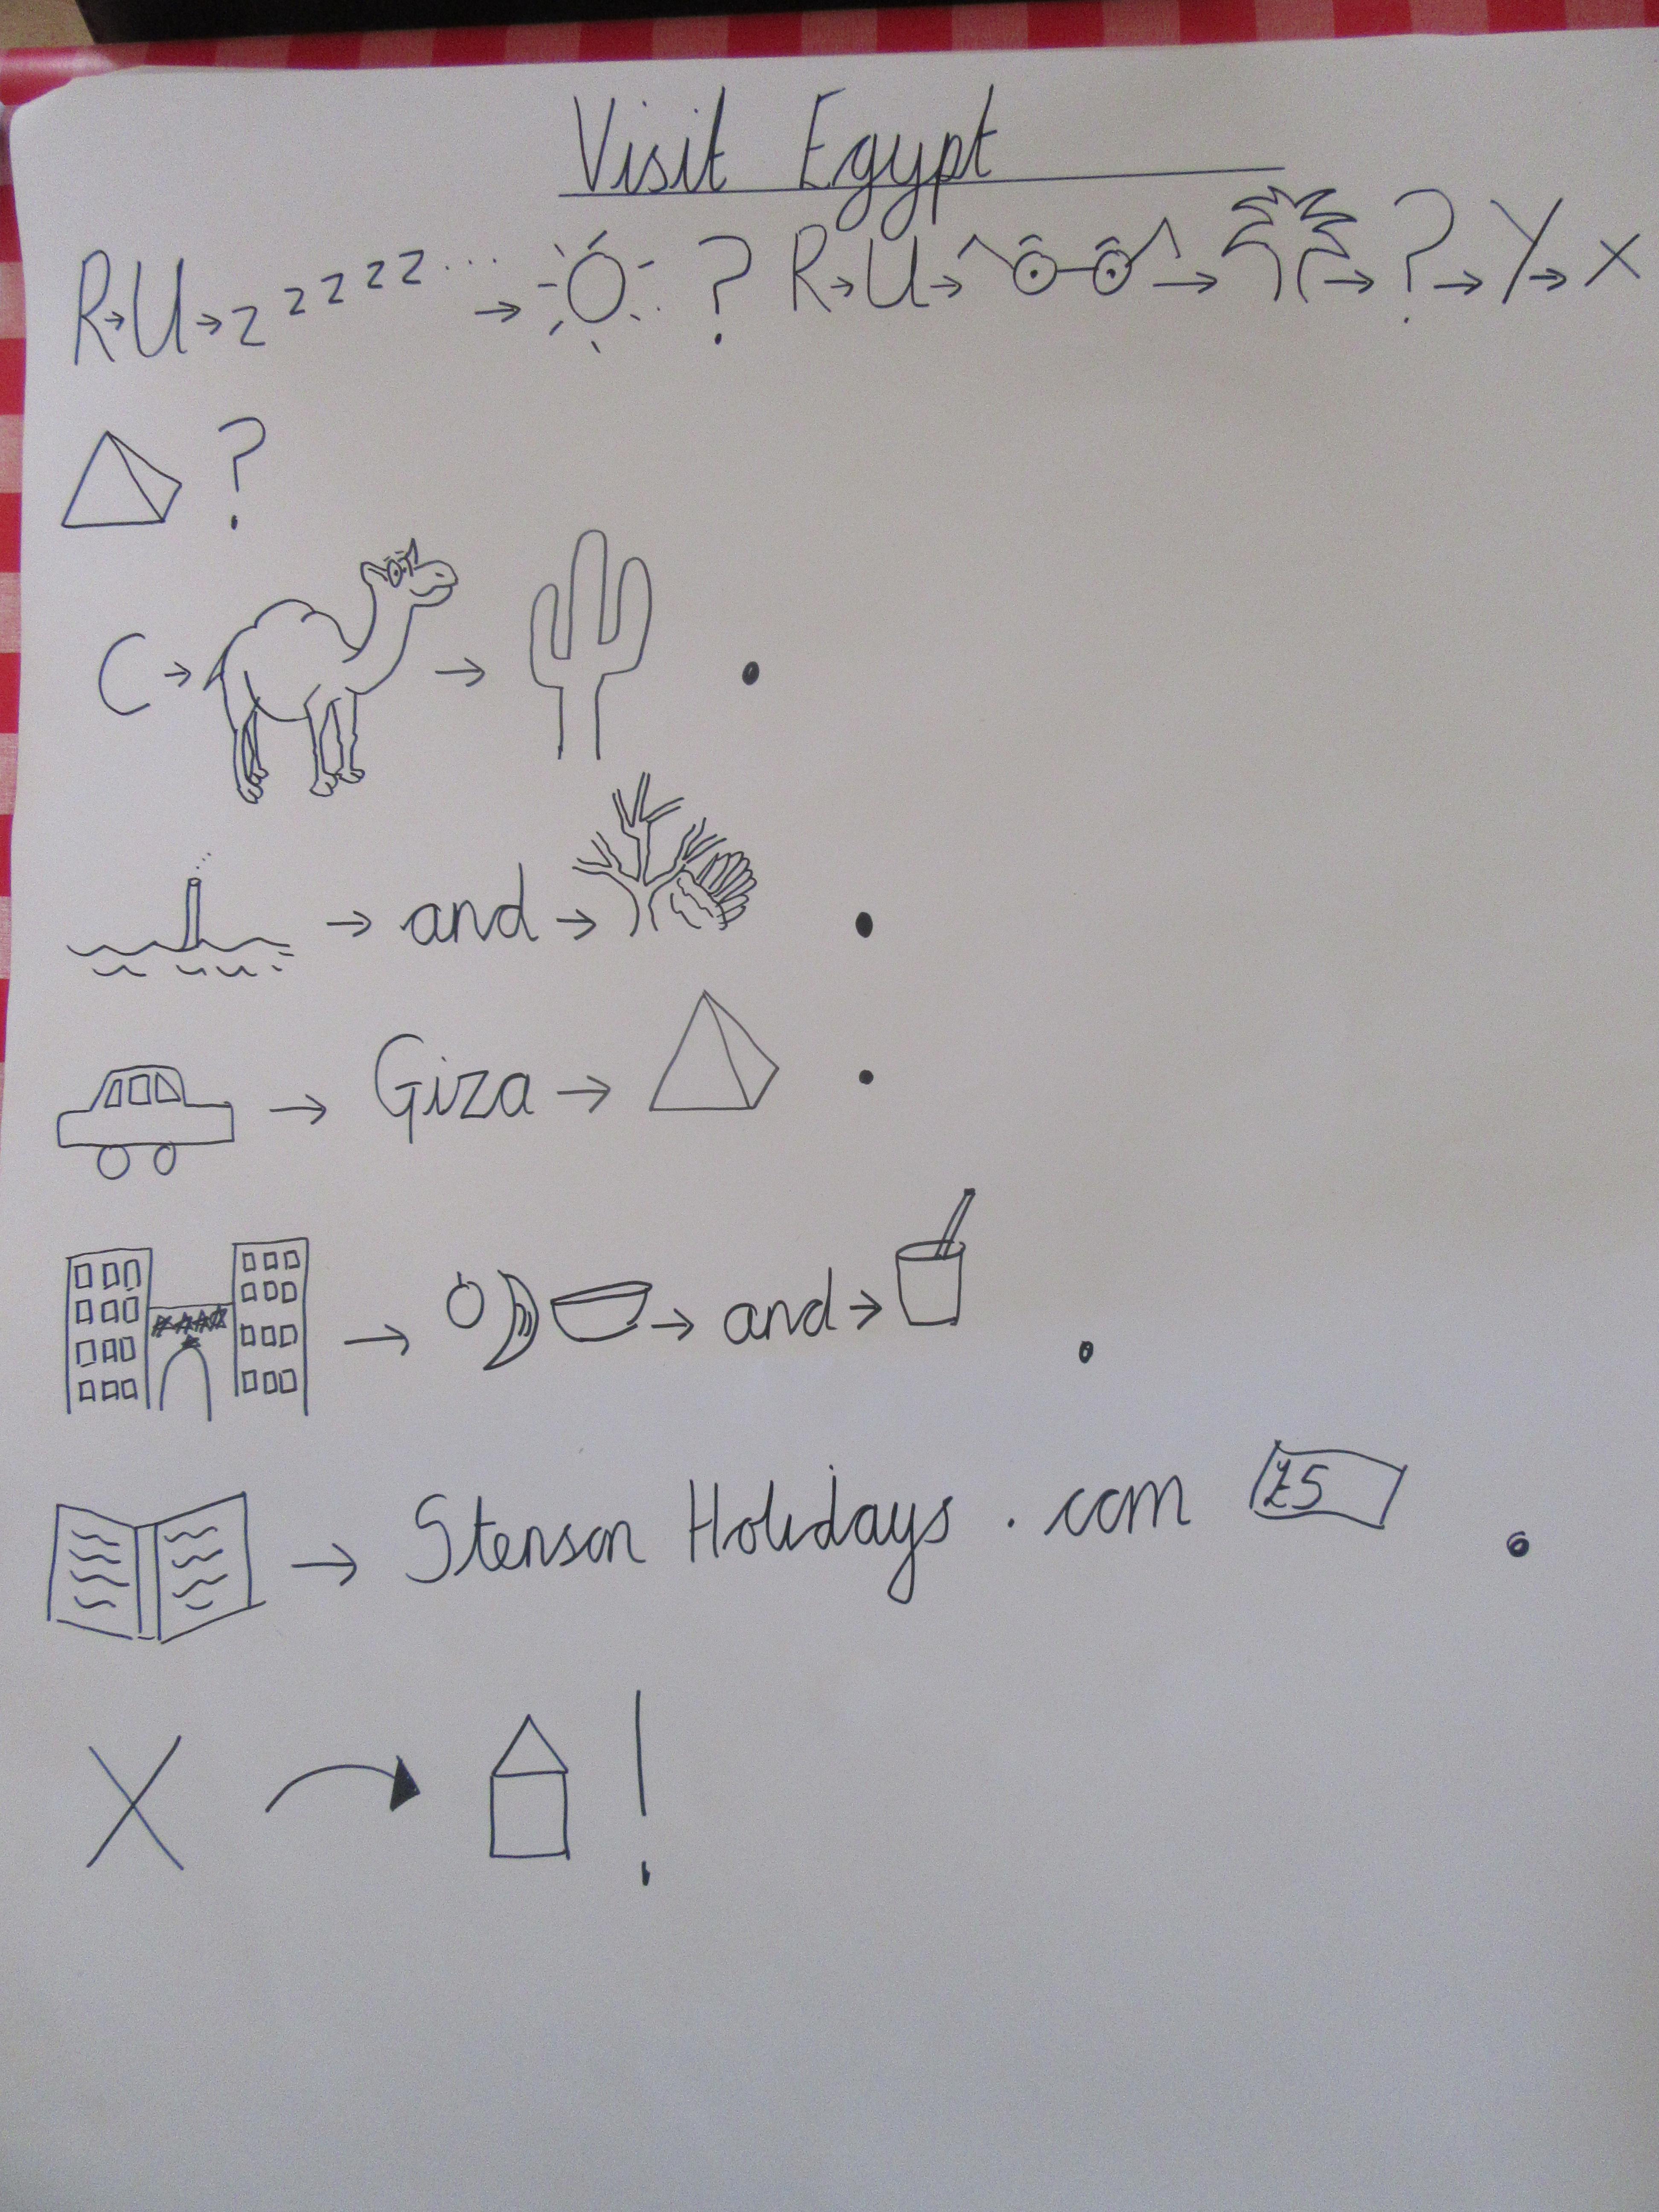 Visit Egypt
R→U→zzzzz...→ ? R→U→ → →?→Y→X
?
C→ → .
→ and → .
→ Giza → .
→ → and → .
→ Stenson Holidays.com £5 .
X !